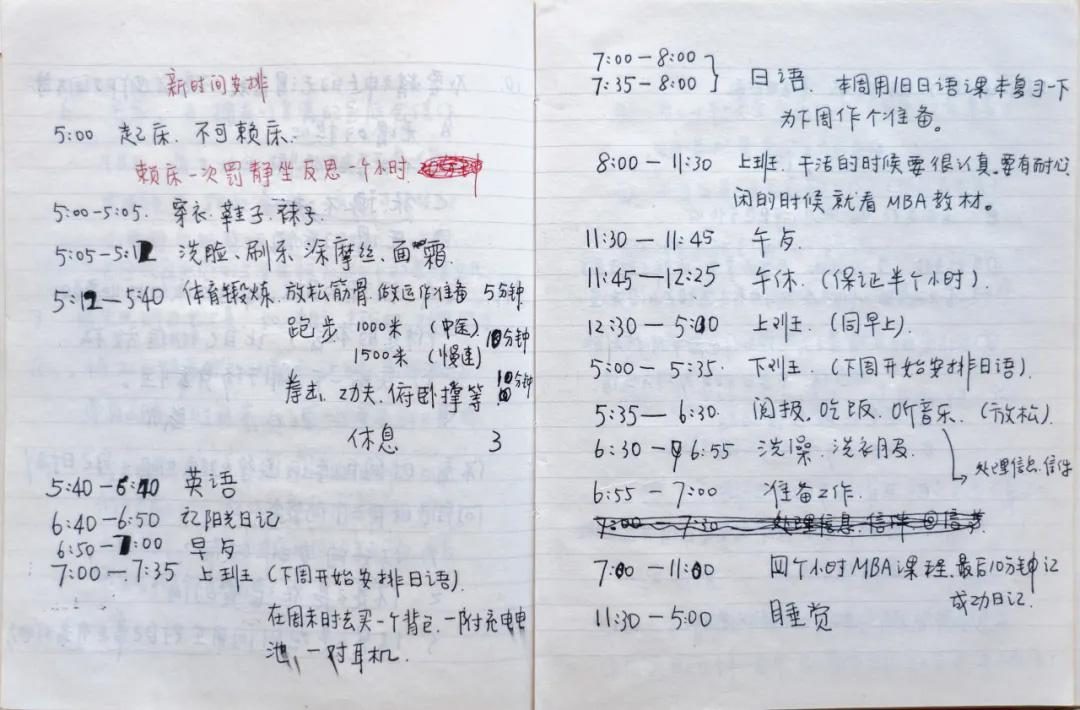 新时间安排
5:00 起床. 不可赖床.
赖床一次罚静坐反思一个小时.
5:00-5:05. 穿衣.鞋子.袜子.
5:05-5:12 洗脸、刷牙.涂摩丝、面霜.
5:12-5:40 体育锻炼.放松筋骨.做运作准备 5分钟
跑步 1000米 (中医) 10分钟
1500米 (慢速)
拳击、功夫.俯卧撑等. 10分钟
休息 3
5:40-6:40 英语
6:40-6:50 记阳光日记
6:50-7:00 早歺
7:00-7:35 上班 (下周开始安排日语).
在周末时去买一个背包.一附充电电
池,一对耳机.
7:00-8:00
7:35-8:00 日语. 本周用旧日语课本复习一下
为下周作个准备。
8:00-11:30 上班.干活的时候要很认真.要有耐心
闲的时候就看MBA教材。
11:30-11:45 午歺.
11:45-12:25 午休.(保证半个小时).
12:30-5:00 上班.(同早上).
5:00-5:35. 下班.(下周开始安排日语).
5:35-6:30. 阅报.吃饭.听音乐.(放松).
6:30-6:55 洗澡.洗衣服.
处理信息.信件
6:55-7:00 准备工作.
7:00-7:30 处理信息.信件.回信等.
7:00-11:00 四个小时MBA课程.最后10分钟记
成功日记.
11:30-5:00 睡觉